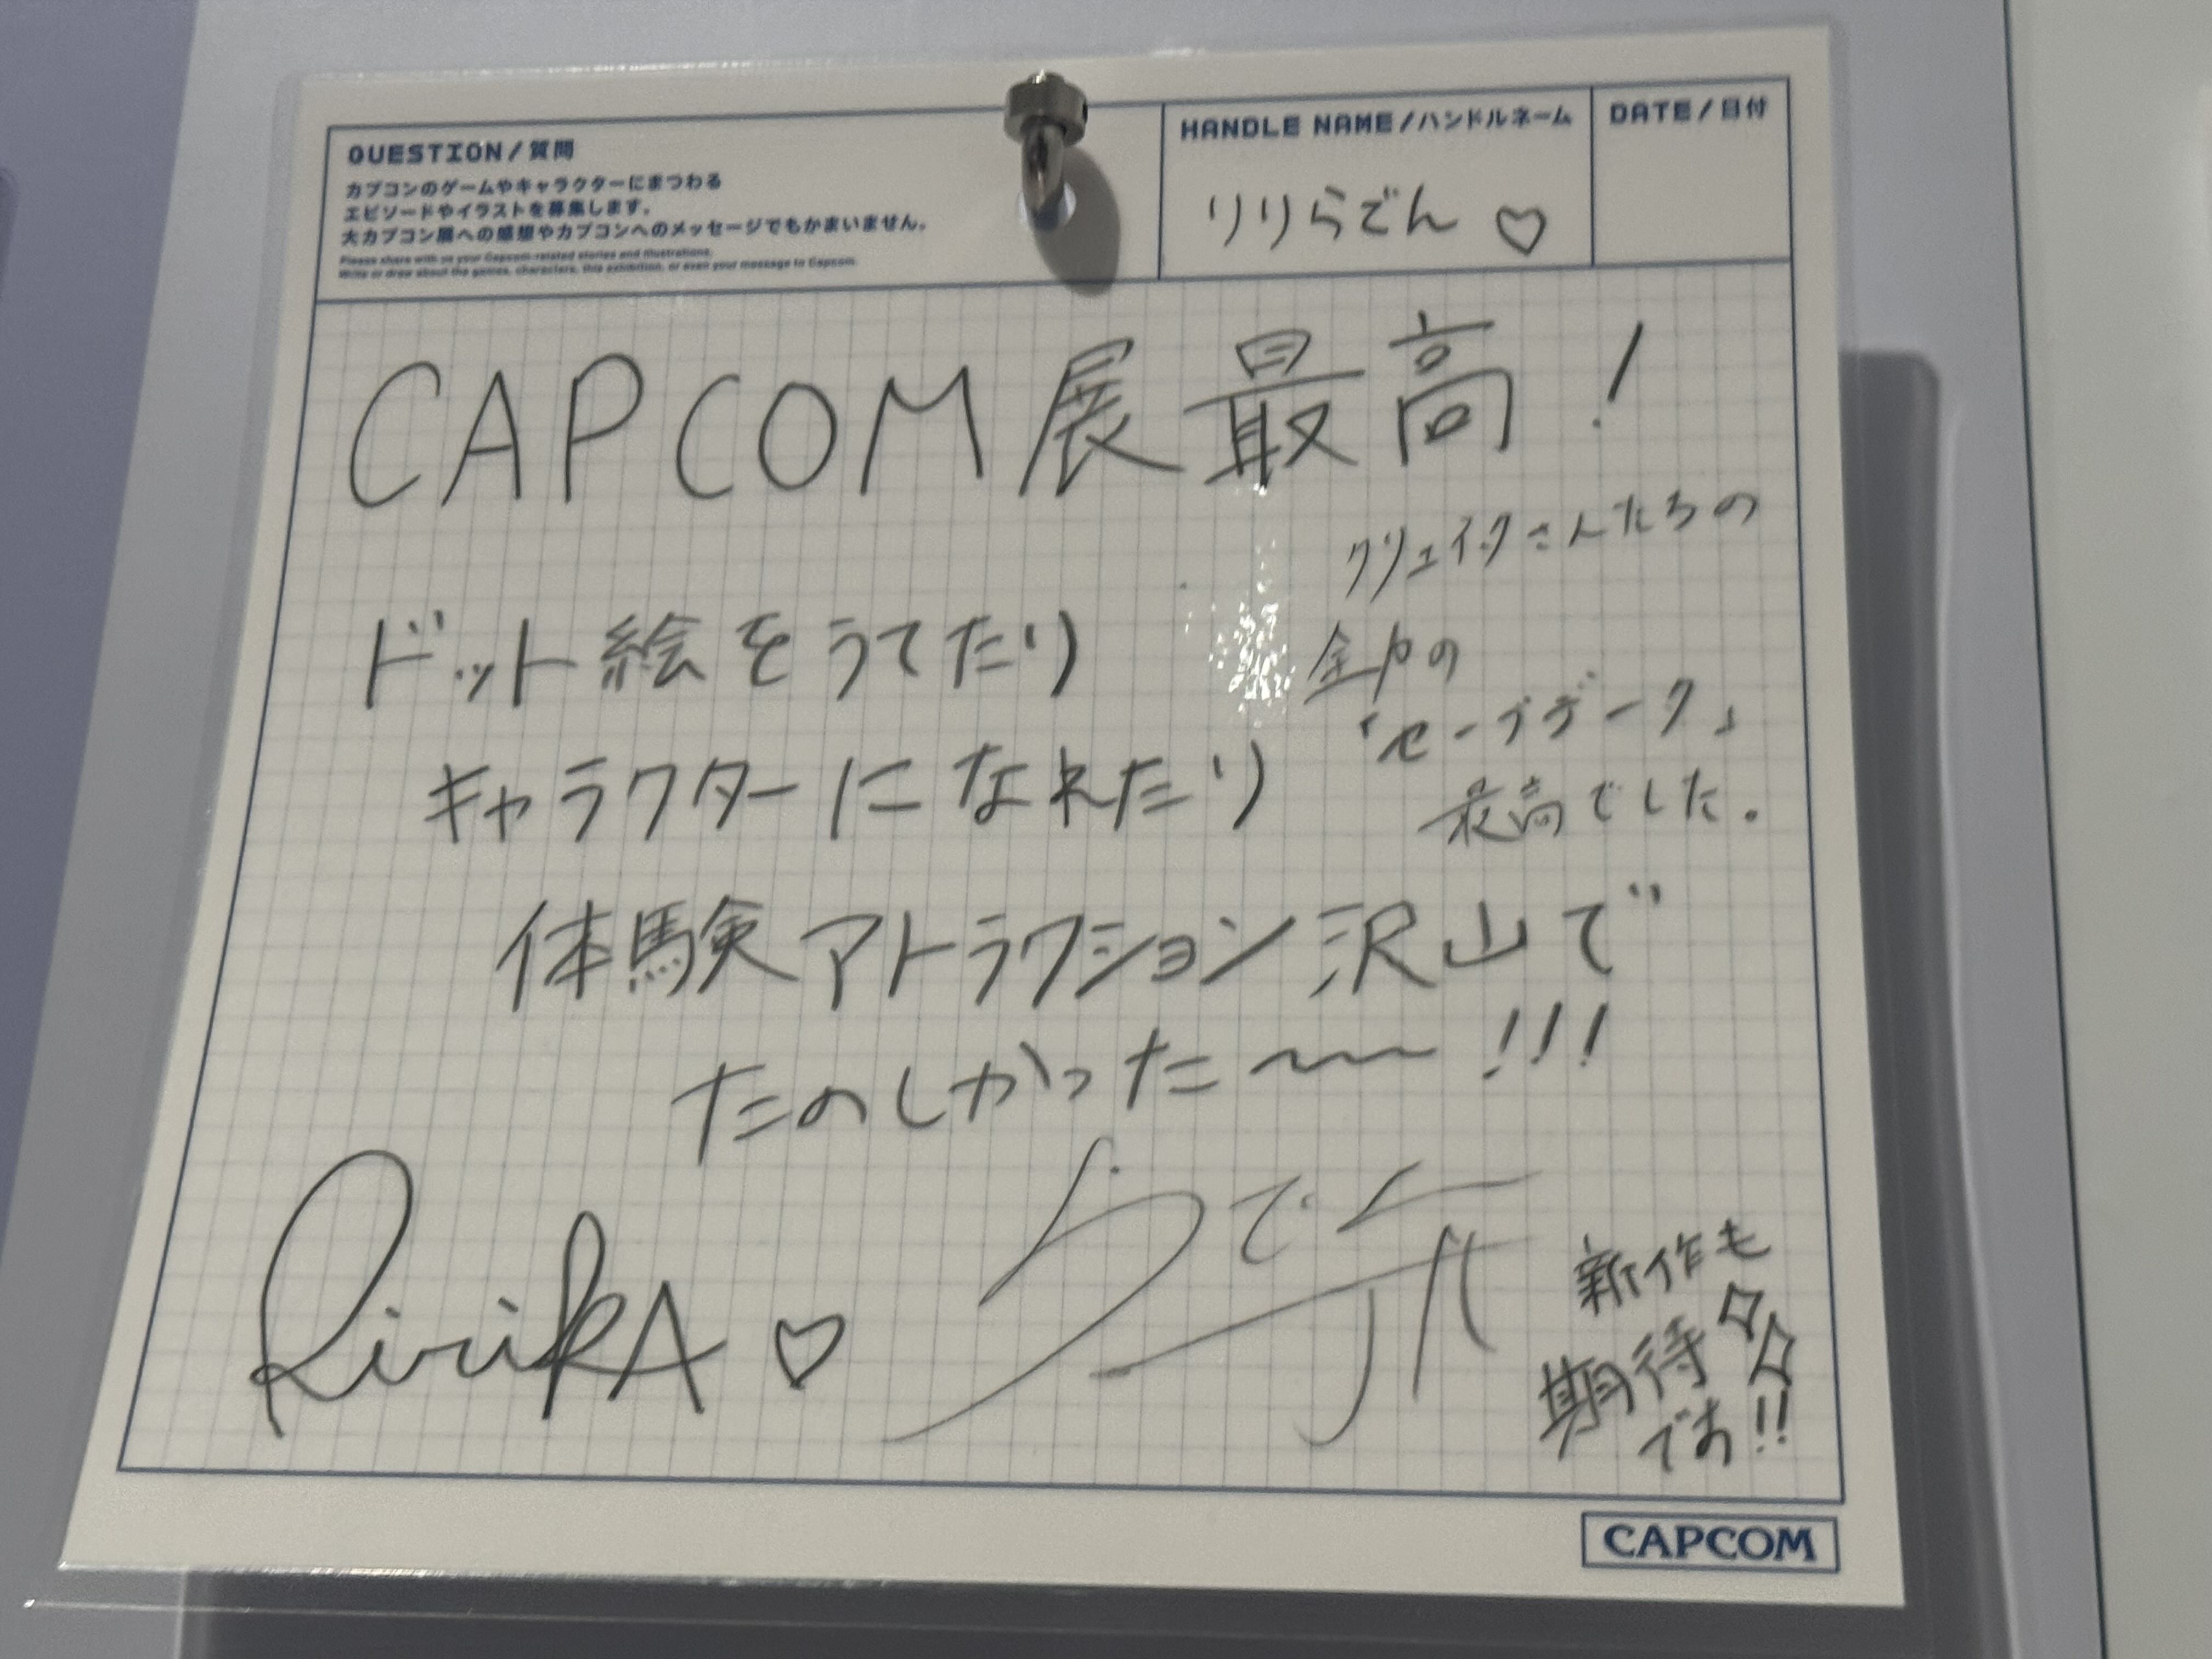 QUESTION/質問
カプコンのゲームやキャラクターにまつわる
エピソードやイラストを募集します。
大カプコン展への感想やカプコンへのメッセージでもかまいません。
Please share with us your Capcom-related stories and illustrations.
Write or draw about the games, characters, this exhibition, or even your message to Capcom.
HANDLE NAME/ハンドルネーム
りりらでん ♡
DATE/日付
CAPCOM展最高!
クリエイターさんたちの
全力の
「セーブデータ」
最高でした。
ドット絵をうてたり
キャラクターになれたり
体験アトラクション沢山で
たのしかった〜!!!
RirikA ♡
らでん
新作も
期待
です!!
CAPCOM